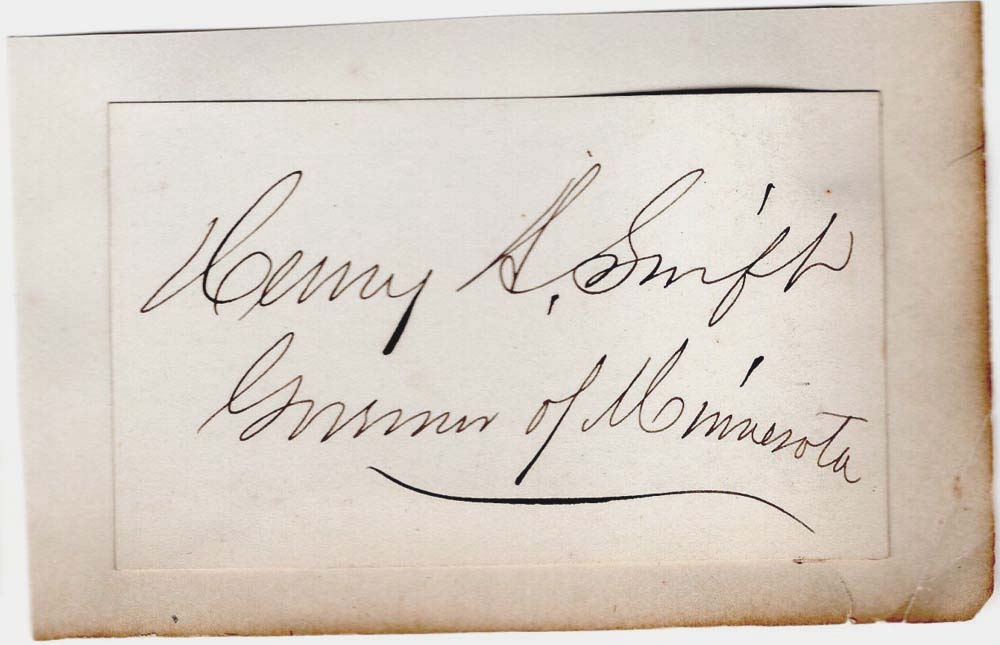 Henry A. Swift
Governor of Minnesota